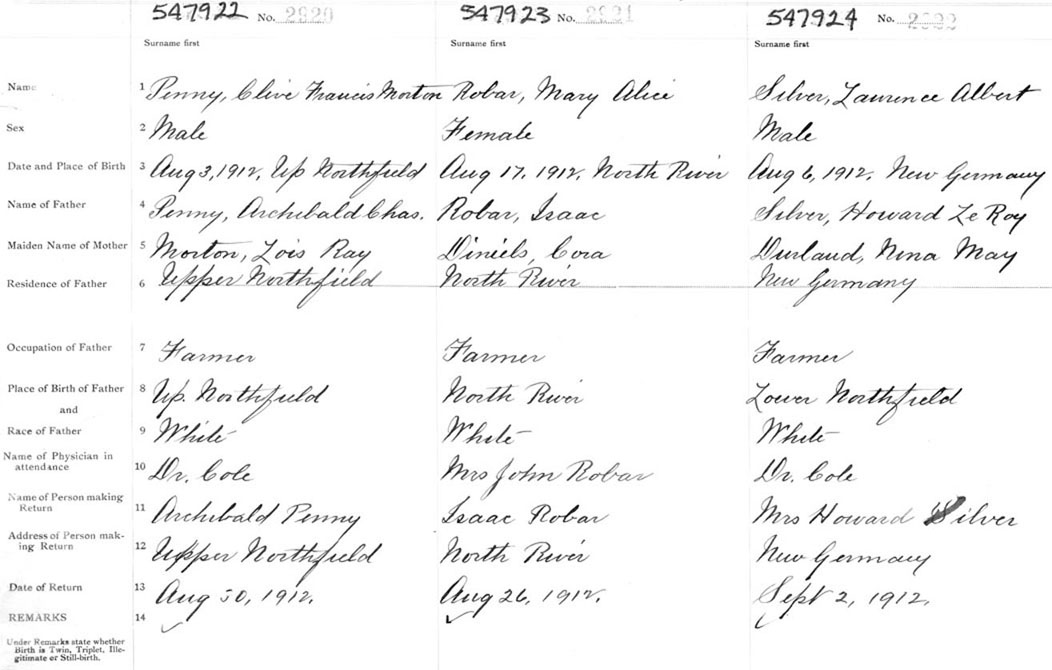 547922 No. 2920 547923 No. 2921 547924 No. 2922
Surname first Surname first Surname first
Name 1 Penny, Clive Francis Morton Robar, Mary Alice Silver, Laurence Albert
Sex 2 Male Female Male
Date and Place of Birth 3 Aug 3, 1912, Up Northfield Aug 17, 1912, North River Aug 6, 1912, New Germany
Name of Father 4 Penny, Archibald Chas. Robar, Isaac Silver, Howard Le Roy
Maiden Name of Mother 5 Morton, Lois Ray Diniels, Cora Durland, Nina May
Residence of Father 6 Upper Northfield North River New Germany
Occupation of Father 7 Farmer Farmer Farmer
Place of Birth of Father 8 Up. Northfield North River Lower Northfield
and
Race of Father 9 White White White
Name of Physician in
attendance 10 Dr. Cole Mrs John Robar Dr. Cole
Name of Person making
Return 11 Archibald Penny Isaac Robar Mrs Howard Silver
Address of Person mak-
ing Return 12 Upper Northfield North River New Germany
Date of Return 13 Aug 30, 1912. Aug 26, 1912. Sept 2, 1912.
REMARKS 14
Under Remarks state whether
Birth is Twin, Triplet, Ille-
gitimate or Still-birth.